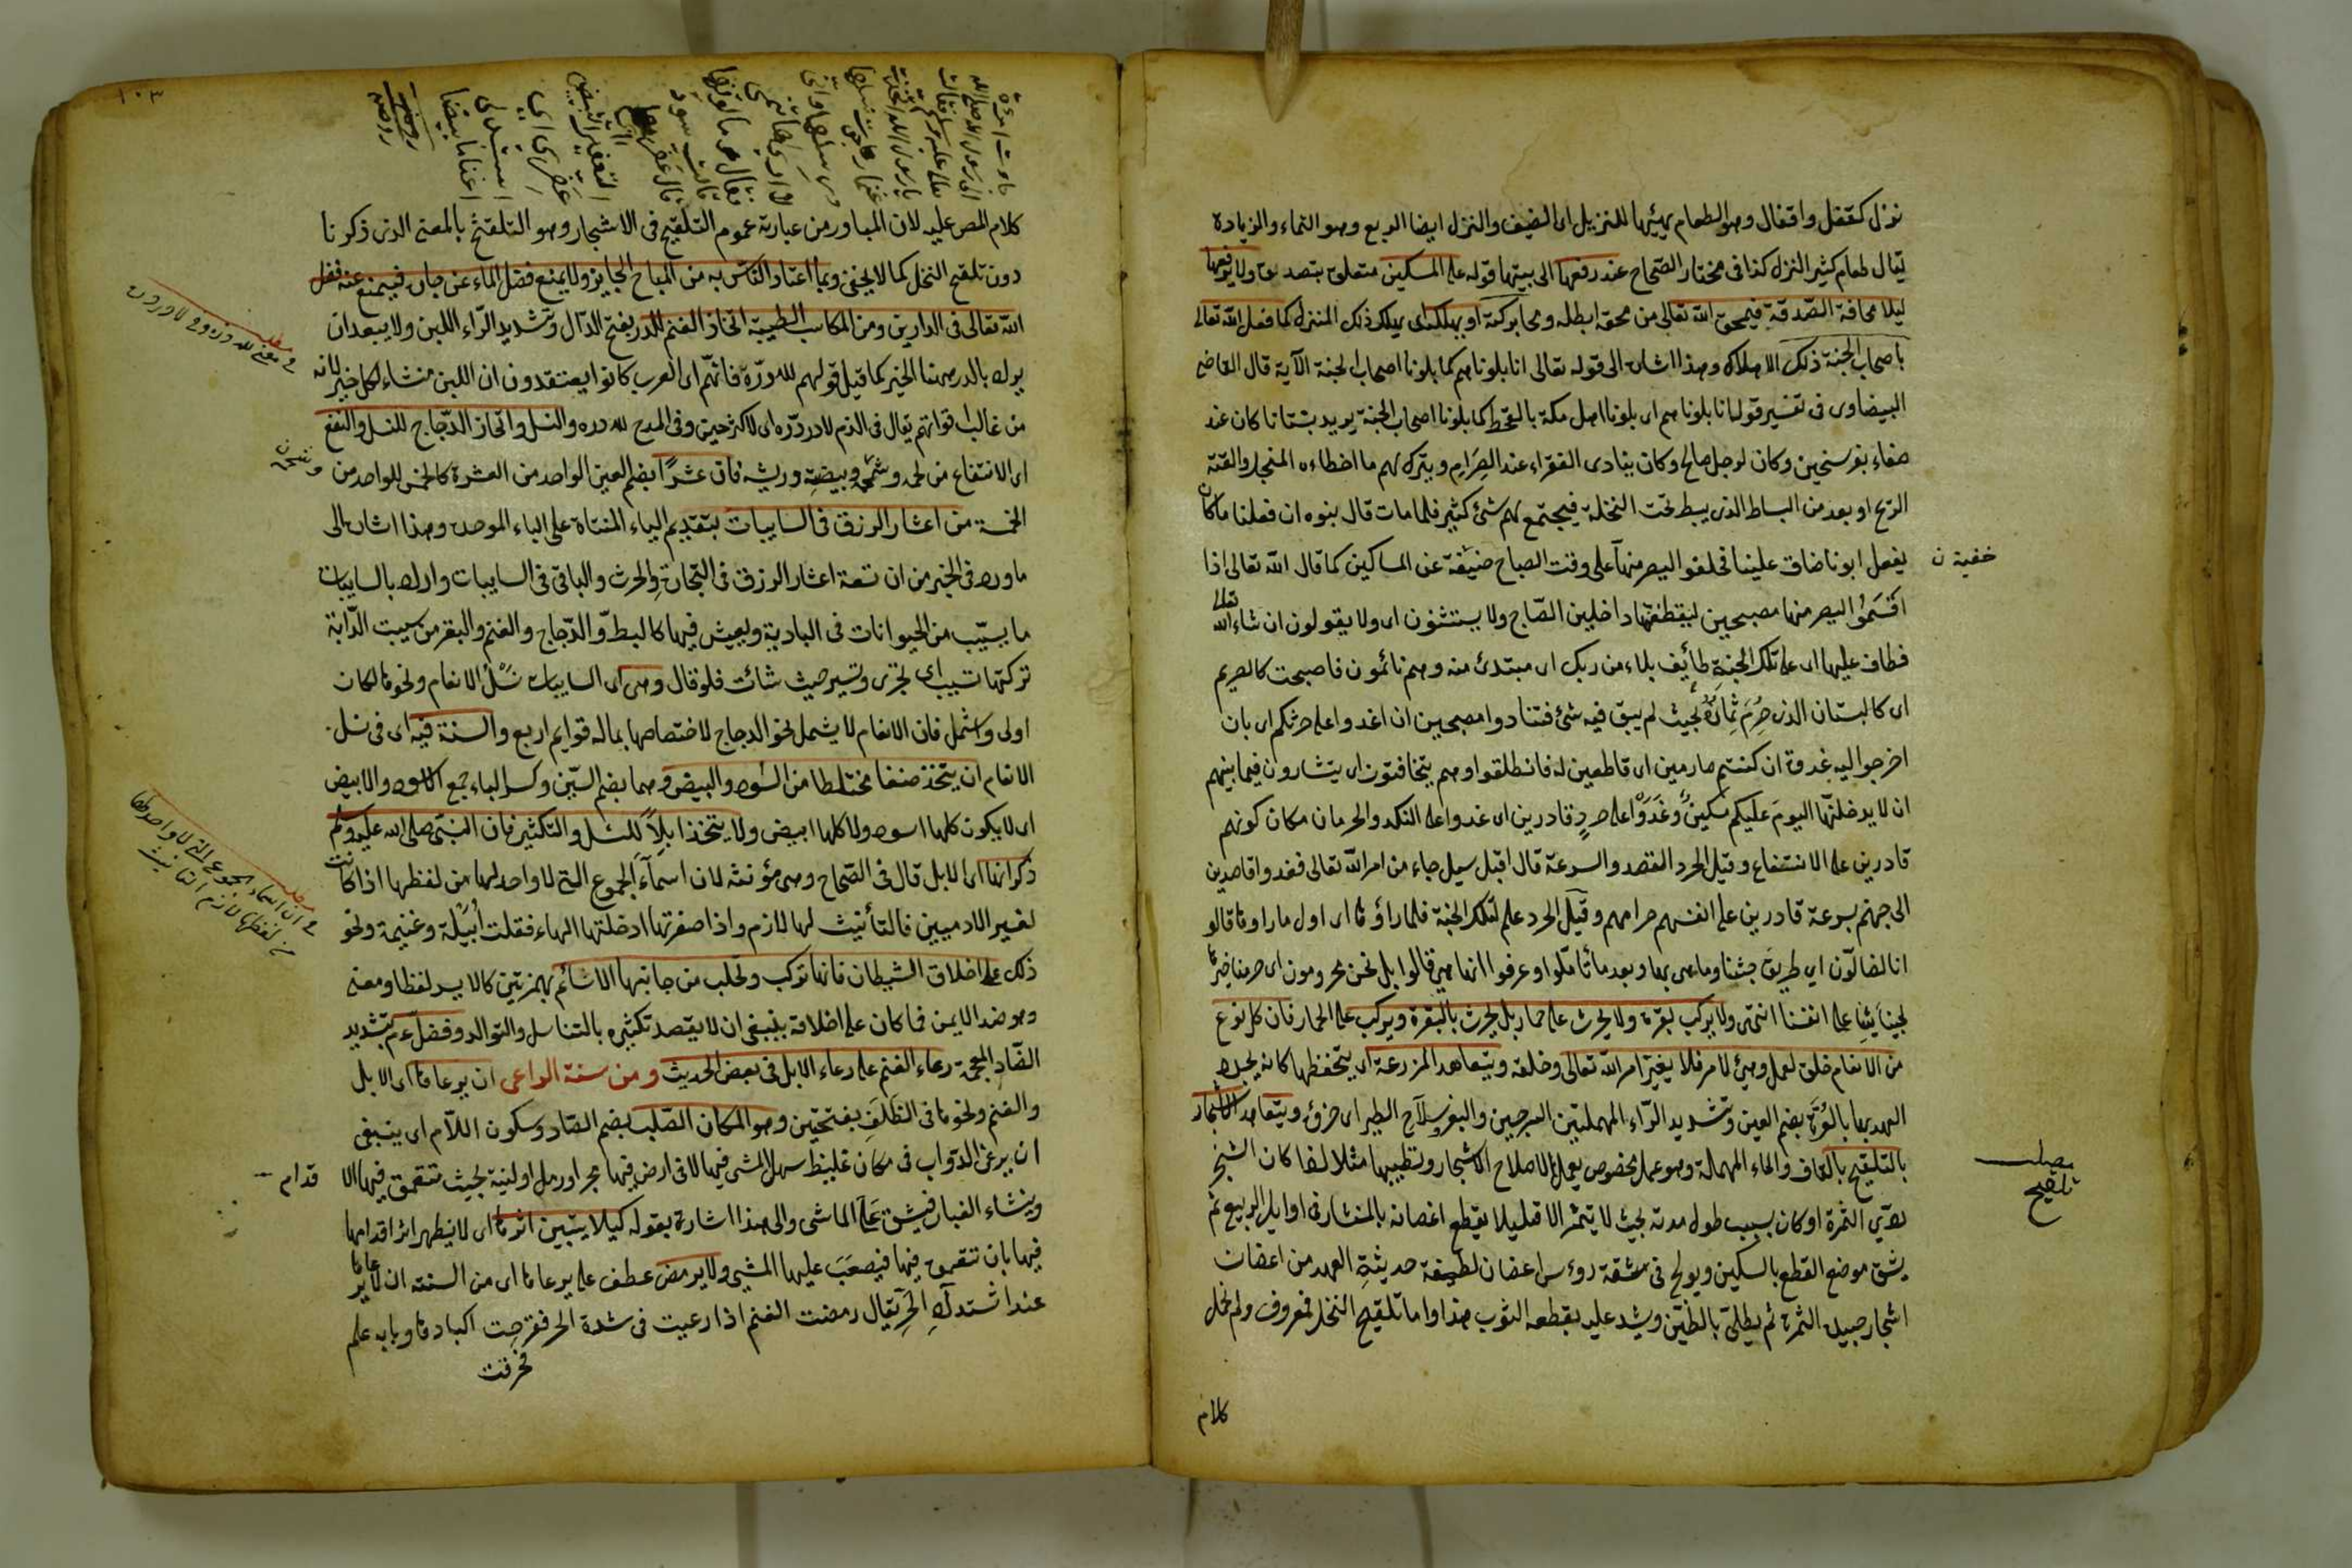 نزل كقفل واقفال وهو الطعام يهيئها للنزيل اى الضيف والنزل ايضا الريع وهو النماء والزيادة
يقال طعام كثير النزل كذا فى مختار الصحاح عند رفعها الى بيتها قوله على المسكين متعلق بتصدق ولا يرفعها
ليلا مخافة الصدقة فيمحق الله تعالى من محقه ابطله ومحا بركته او يهلك اى يهلك ذلك المنزل كما فعل الله تعالى
باصحاب الجنة ذلك الاهلاك وهذا اشارة الى قوله تعالى انا بلوناهم كما بلونا اصحاب الجنة الآية قال القاضى
البيضاوى فى تفسير قوله انا بلوناهم اى بلونا اهل مكة بالقحط كما بلونا اصحاب الجنة يريد بستانا كان عند
صنعاء بفرسخين وكان لرجل صالح وكان ينادى الفقراء عند الصرام ويترك لهم ما اخطاءه المنجل والقته
الريح او بعد من البساط الذى يبسط تحت النخلة فيجتمع لهم شئ كثير فلما مات قال بنوه ان فعلنا ما كان
يفعل ابونا ضاق علينا فحلفوا ليصرمنها على وقت الصباح خيفة عن المساكين كما قال الله تعالى اذا
خفية ن
اقسموا ليصرمنها مصبحين ليقطفنها داخلين الصباح ولا يستثنون اى ولا يقولون ان شاء الله تعالى
فطاف عليها اى على تلك الجنة طائف بلاء من ربك اى مبتدئ منه وهم نائمون فاصبحت كالصريم
اى كالبستان الذى صرم ثماره بحيث لم يبق فيه شئ فتنادوا مصبحين ان اغدوا على حرثكم اى بان
اخرجوا اليه غدوة ان كنتم صارمين اى قاطعين له فانطلقوا وهم يتخافتون اى يتشارون فيما بينهم
ان لا يدخلنها اليوم عليكم مسكين وغدوا على حرد قادرين اى غدوا على النكد والحرمان مكان كونهم
قادرين على الانتفاع وقيل الحرد القصد والسرعة قال اقبل سيل جاء من امر الله تعالى فغدوا قاصدين
الى جنتهم بسرعة قادرين على انفسهم صرامهم وقيل الحرد علم لتلك الجنة فلما راؤها اى اول ما راوها قالوا
انا لضالون اى طريق جنتنا وما هى بها وبعد ما تأملوا وعرفوا انها هى قالوا بل نحن محرومون اى حرمنا خيرها
لجنايتنا على انفسنا انتهى ولا يركب بقرة ولا يحرث على حمار بل يحرث بالبقرة ويركب على الحمار فان كل نوع
من الانعام خلق لعمل وهيئ لامر فلا يغير امر الله تعالى وخلقه ويتعاهد المزرعة اى يتحفظها كانه يجدد
العهد بها بالعرة بضم العين وتشديد الراء المهملتين السرجين والبعر وسلاح الطير اى خرؤه ويتعاهد الاشجار
بالتلقيح بالقاف والحاء المهملة وهو عمل مخصوص يعمل لاصلاح الاشجار وتطييبها مثلا لما كان الشجر
مطلب
تلقيح
ردّي الثمرة او كان بسبب طول مدته بحيث لا يثمر الا قليلا يقطع اغصانه بالمنشار فى اوايل الربيع ثم
يشق موضع القطع بالسكين ويولج فى شقه رؤس اغصان لطيفة حديثة العهد من اغصان
اشجار جيدة الثمرة ثم يطلى بالطين ويشد عليه بقطعه الثوب هذا واما تلقيح النخل فمعروف ولم نحمل
كلام
١٠٣
كلام المص عليه لان المتبادر من عبارته عموم التلقيح فى الاشجار وهو التلقيح بالمعنى الذى ذكرنا
دون تلقيح النخل كما لا يخفى وبما اعتاد الناس به من المباح الجايز ولا يمنع فضل الماء عن جاره فيمنع عنه فضل
الله تعالى فى الدارين ومن المكاسب الطيبة اتخاذ الغنم للدر بفتح الدال وتشديد الراء اللبن ولا يبعد ان
يراد بالدر ههنا الخير كما قيل قولهم لله درّه فانهم اى العرب كانوا يعتقدون ان اللبن منشاء لكل خير لانه
من غالب اقواتهم يقال فى الذم لا در درّه اى لا كثر خيره وفى المدح لله دره والنسل واتخاذ الدجاج للنسل والنفع
اى الانتفاع من لحمه وشحمه وبيضه وريشه فان عشرا بضم العين الواحد من العشرة كالخمس للواحد من
الخمسة من اعشار الرزق فى السايبات بتقديم الياء المثناة على الباء الموحدة وهذا اشارة الى
ما ورد فى الخبر من ان تسعة اعشار الرزق فى التجارة والحرث والباقى فى السايبات واراد بالسايبات
ما يسيّب من الحيوانات فى البادية ويعيش فيها كالبط والدجاج والغنم والبقر من سيبت الدابة
تركتها تسيب اى تجرى وتسير حيث شائت فلو قال وهى اى السايبات نسل الانعام ونحوها لكان
اولى واشمل فان الانعام لا يشمل نحو الدجاج لاختصاصها بماله قوايم اربع والسنة فيه اى فى نسل
الانعام ان يتخذ صنفا مختلطا من السود والبيض وهما بضم السين وكسر الباء جمع الاسود والابيض
اى لا يكون كلها اسود ولا كلها ابيض ولا يتخذ ابلا للنسل والتكثير فان النبى صلى الله عليه وسلم
ذكر انها اى الابل قال فى الصحاح وهى مؤنثة لان اسماء الجموع التى لا واحد لها من لفظها اذا كانت
لغير الادميين فالتأنيث لها لازم واذا صغرتها ادخلتها الهاء فقلت ابيلة وغنيمة ونحو
ذلك على اخلاق الشيطان فانها تركب وتحلب من جانبها الاشأم بهمزتين كالايسر لفظا ومعنى
وهو ضد الايمن فما كان على اخلاقه ينبغى ان لا يقصد تكثيره بالتناسل والتوالد وفضل عم بتشديد
الضاد المعجمة رعاء الغنم على رعاء الابل فى بعض الحديث ومن سنة الراعى ان يرعاها اى الابل
والغنم ونحوها فى الظلف بفتحتين وهو المكان الصلب بضم الصاد وسكون اللام اى ينبغى
ان يرعى الدواب فى مكان غليظ سهل المشى فيها لا فى ارض فيها حجر او رمل او لينة بحيث تتعمق فيها الا
قدام
وينشاء الغبار فيشق على الماشى والى هذا اشارة بقوله كيلا يتبين اثرها اى لا يظهر اثر اقدامها
فيها بان تتعمق فيها فيصعب عليها المشى ولا يرمض عطف على يرعاها اى من السنة ان لا يرعاها
عند اشتداد الحر يقال رمضت الغنم اذا رعيت فى شدة الحر فقرحت اكبادها وبابه علم